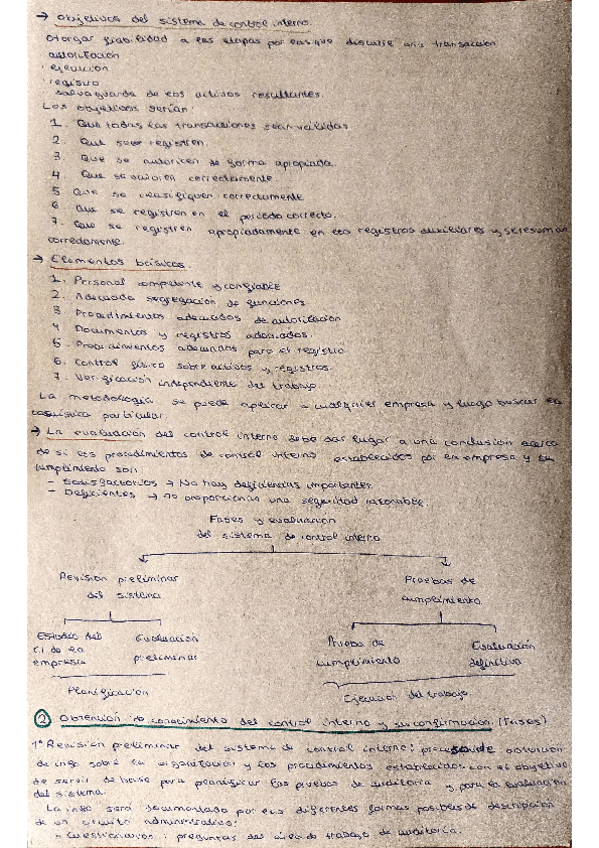 → Objetivos del sistema de control interno.
Otorgar fiabilidad a las etapas por las que discurre una transacción
autorización
ejecución
registro
salvaguarda de los activos resultantes.
Los objetivos serían:
1. Que todas las transacciones sean válidas
2. Que se registren.
3. Que se autoricen de forma apropiada.
4. Que se valoren correctamente.
5. Que se clasifiquen correctamente
6. Que se registren en el periodo correcto.
7. Que se registren apropiadamente en los registros auxiliares y se resuman
correctamente.
→ Elementos básicos.
1. Personal competente y confiable
2. Adecuada segregación de funciones
3. Procedimientos adecuados de autorización
4. Documentos y registros adecuados.
5. Procedimientos adecuados para el registro
6. Control físico sobre activos y registros.
7. Verificación independiente del trabajo.
La metodología se puede aplicar a cualquier empresa y luego buscar la
casuística particular.
→ La evaluación del control interno debe dar lugar a una conclusión acerca
de si los procedimientos de control interno establecidos por la empresa y su
cumplimiento son:
- Satisfactorios → No hay deficiencias importantes.
- Deficientes → no proporcionan una seguridad razonable.
Fases y evaluación
del sistema de control interno
Revisión preliminar Pruebas de
del sistema cumplimiento
Estudio del Evaluación Prueba de Evaluación
C.I de la preliminar cumplimiento definitiva
empresa
Planificación Ejecución del trabajo
2 Obtención conocimiento del control interno y su confirmación. (Fases)
1º Revisión preliminar del sistema de control interno: proceso de obtención
de info sobre la organización y los procedimientos establecidos con el objetivo
de servir de base para planificar las pruebas de auditoría y para la evaluación
del sistema.
La info será documentada por las diferentes formas posibles de descripción
de un circuito administrativo:
Cuestionarios: preguntas del área de trabajo de auditoría.